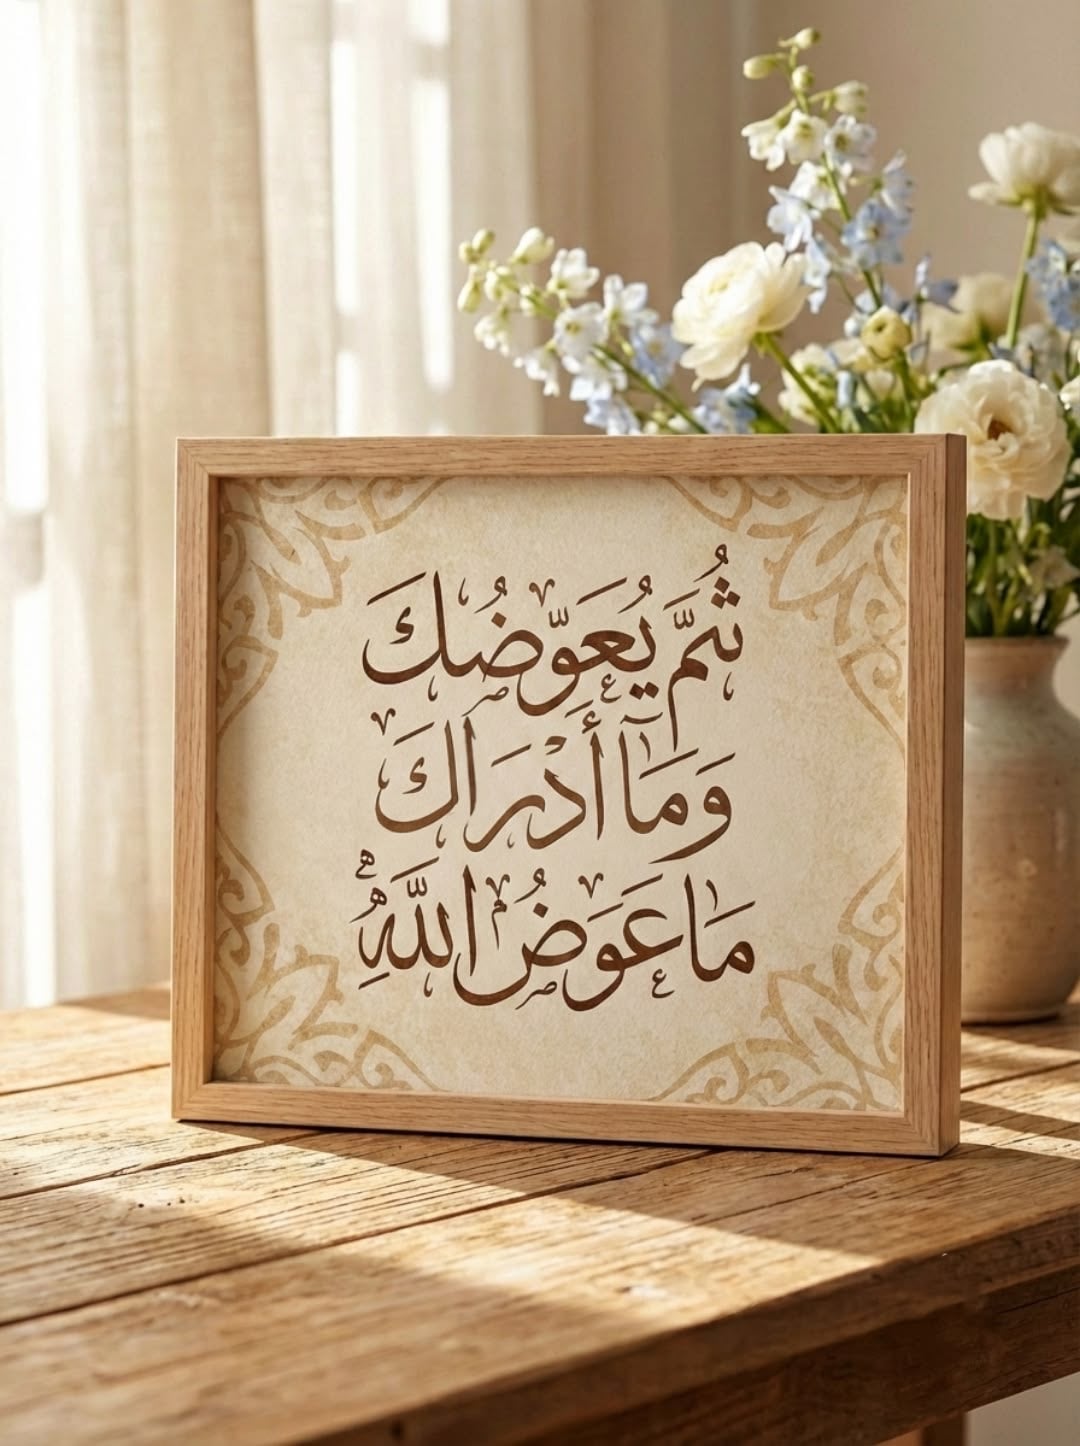 ثُمَّ يُعَوِّضُكَ
وَمَآ أَدْرَاكَ
مَا عَوَضُ اللَّهِ